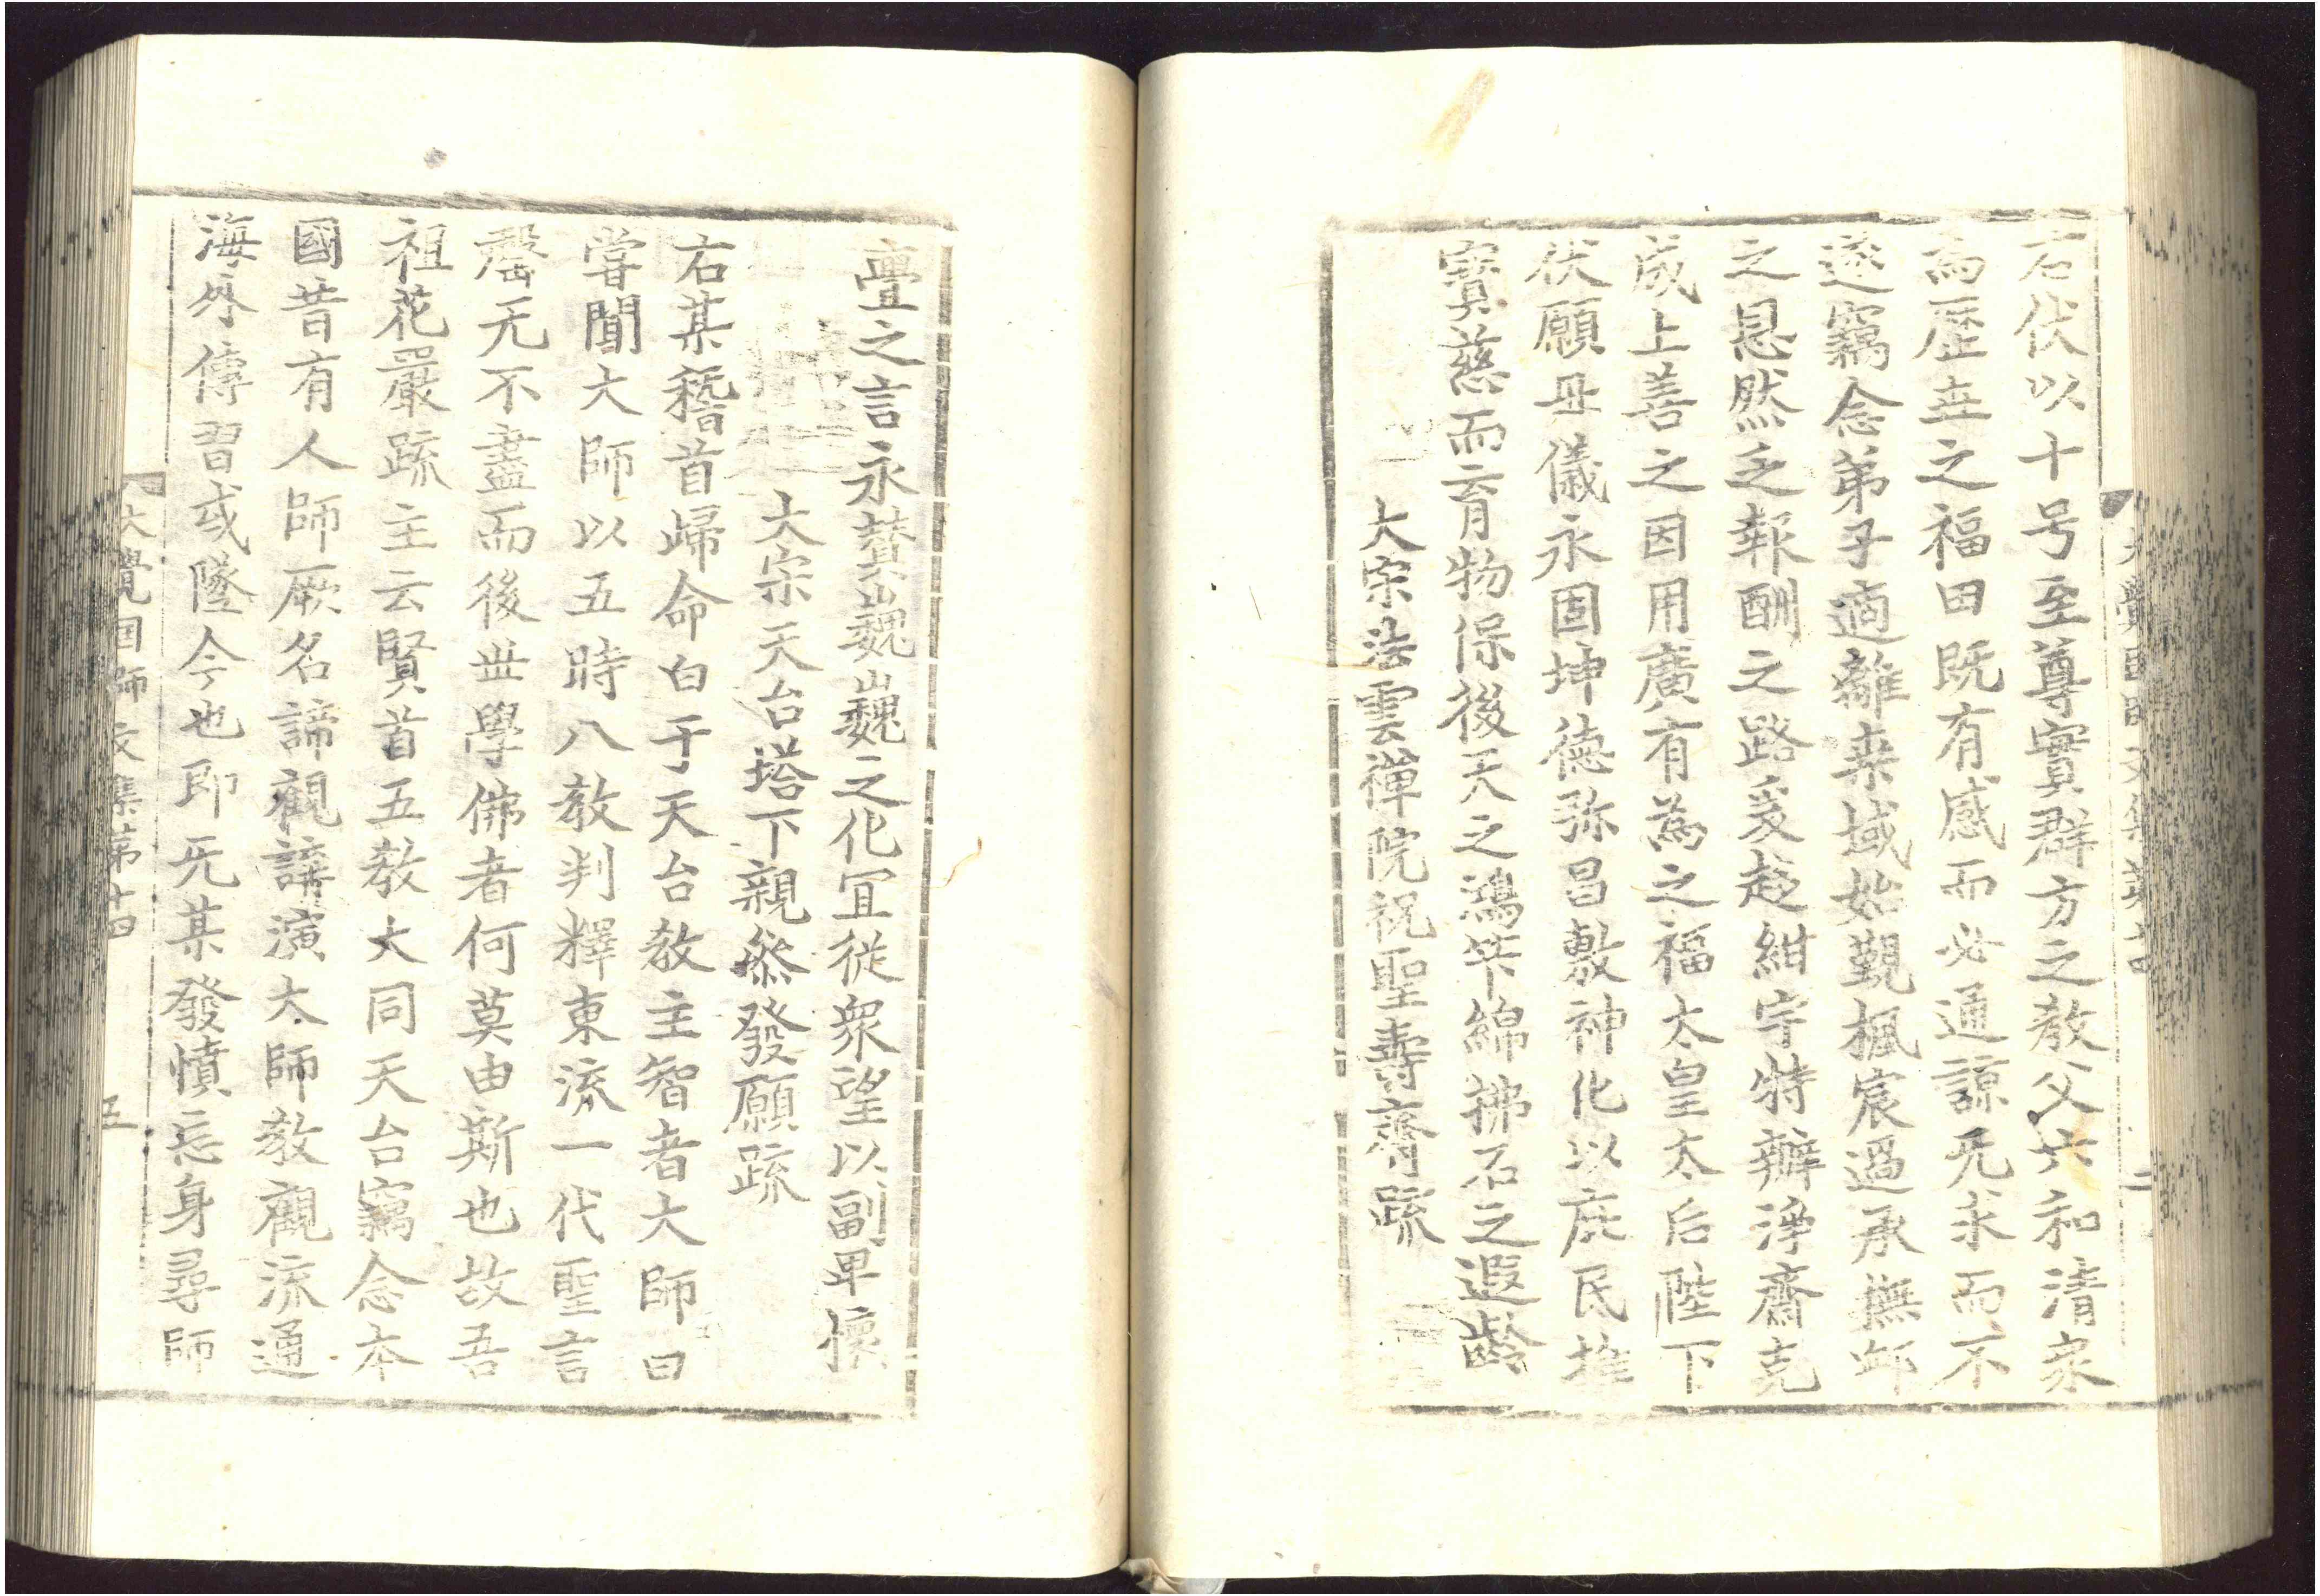 大覺国師文集第十四 二
右伏以十号至尊實群方之教父六和清衆
爲歷世之福田既有感而必通諒无求而不
遂竊念弟子適離桒域始覲楓宸過承撫邺
之恩然乏報酬之路爰趍紺宇特辦淨齋克
成上善之因用廣有爲之福太皇太后陛下
伏願母儀永固坤德弥昌敷神化以庇民推
寳慈而育物保後天之鴻筭綿拂石之遐齡
大宋法雲禪院祝聖壽齋疏
亹之言永賛巍巍之化冝従衆望以副卑懐
大宋天台塔下親叅發願疏
右某稽首歸命白于天台教主智者大師曰
甞聞大師以五時八教判釋東流一代聖言
罄无不盡而後世學佛者何莫由斯也故吾
祖花嚴疏主云賢首五教大同天台竊念本
國昔有人師厥名諦觀講演大師教觀流通
海外傳習或墜今也即无某發憤忘身尋師
大覺国師文集第十四 五